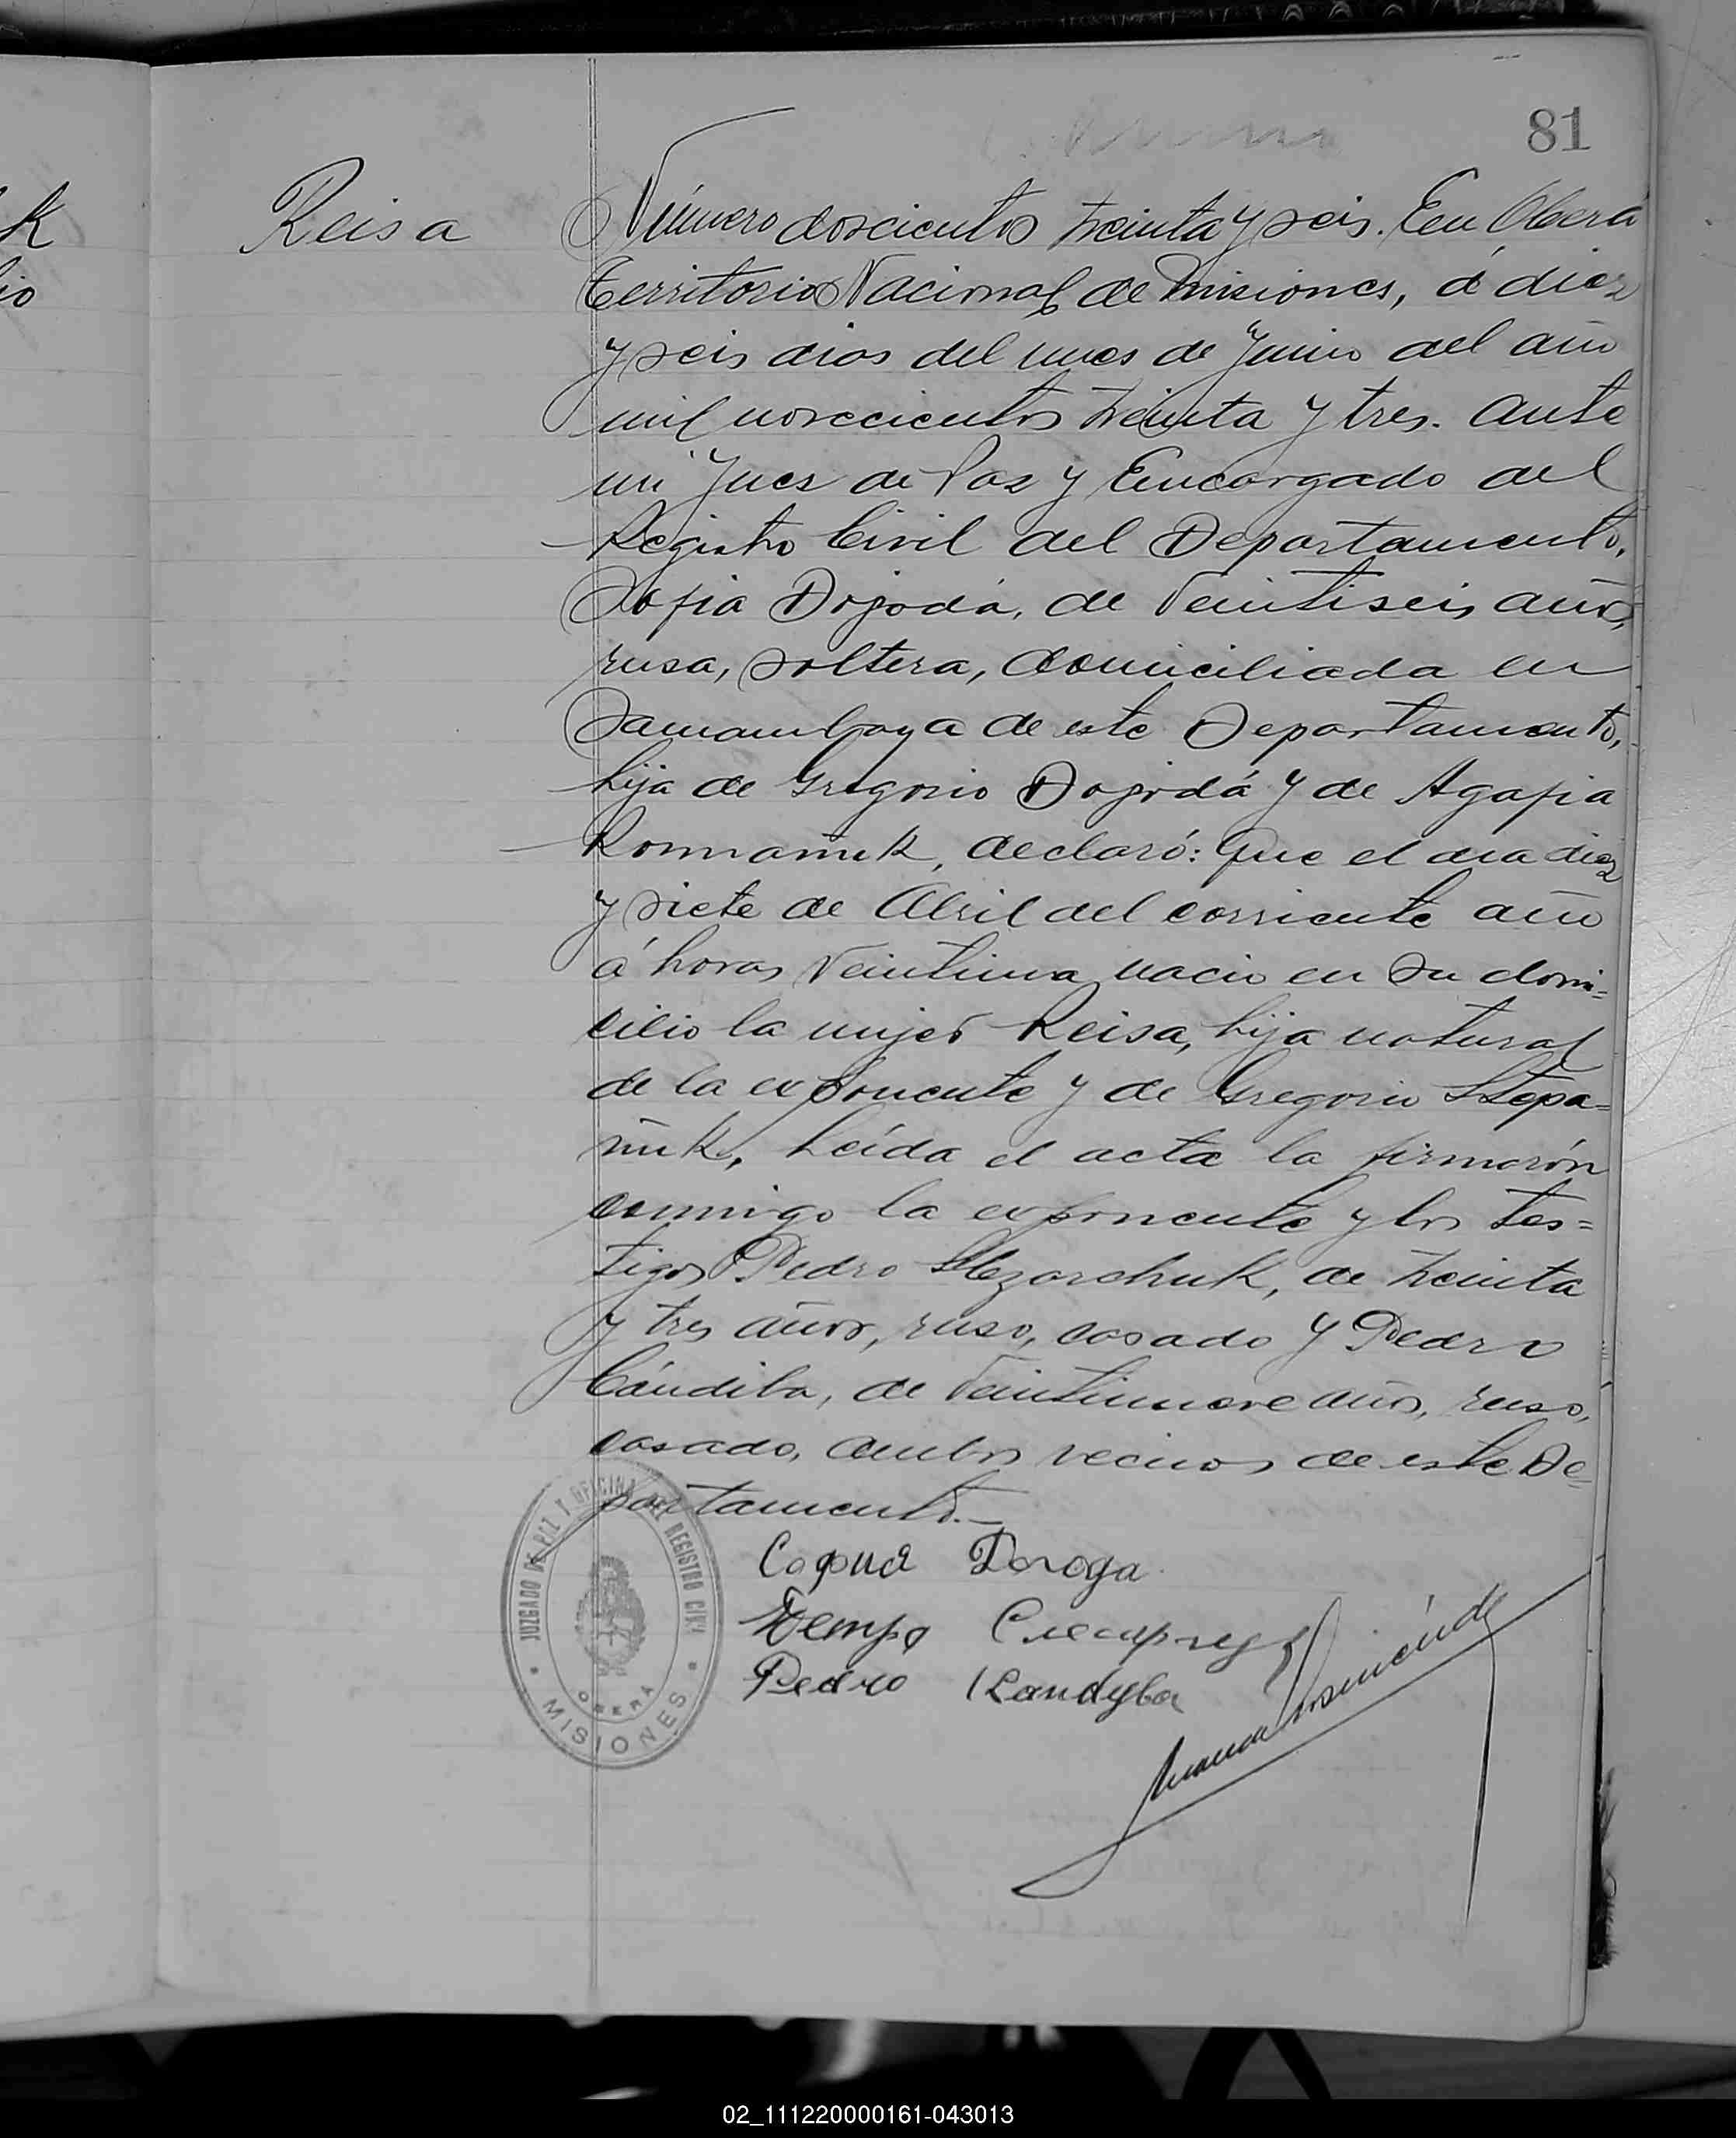 81
Reisa
Número doscientos treinta y seis. En Oberá
Territorio Nacional de Misiones, á diez
y seis dias del mes de Junio del año
mil novecientos treinta y tres. Ante
mi Juez de Paz y Encargado del
Registro Civil del Departamento,
Sofia Dojodá, de veintiseis años,
rusa, soltera, domiciliada en
Samambaya de este Departamento,
hija de Gregorio Dojodá y de Agafia
declaró: Que el dia diez
y siete de Abril del corriente año
á horas veintiuna nacio en su domi=
cilio la mujer Reisa, hija natural
de la exponente y de Gregorio Stepa=
ñuk. Leída el acta la firmarón
conmigo la exponente y los tes=
tigos Pedro de treinta
y tres años, ruso, casado y Pedro
Cándiba, de veintinueve años, ruso,
casado, ambos vecinos de este De=
partamento.—
JUZGADO DE PAZ Y OFICINA DEL REGISTRO CIVIL
OBERÁ
MISIONES
Pedro Kandyba
02_111220000161-043013